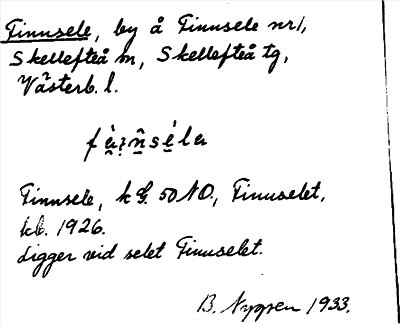 Finnsele, by å Finnsele nr 1,
Skellefteå m, Skellefteå tg,
Västerb. l.
Finnsele, k 50 NO., Finnselet,
kb. 1926.
Ligger vid selet Finnselet.
B. Nyppen 1933.